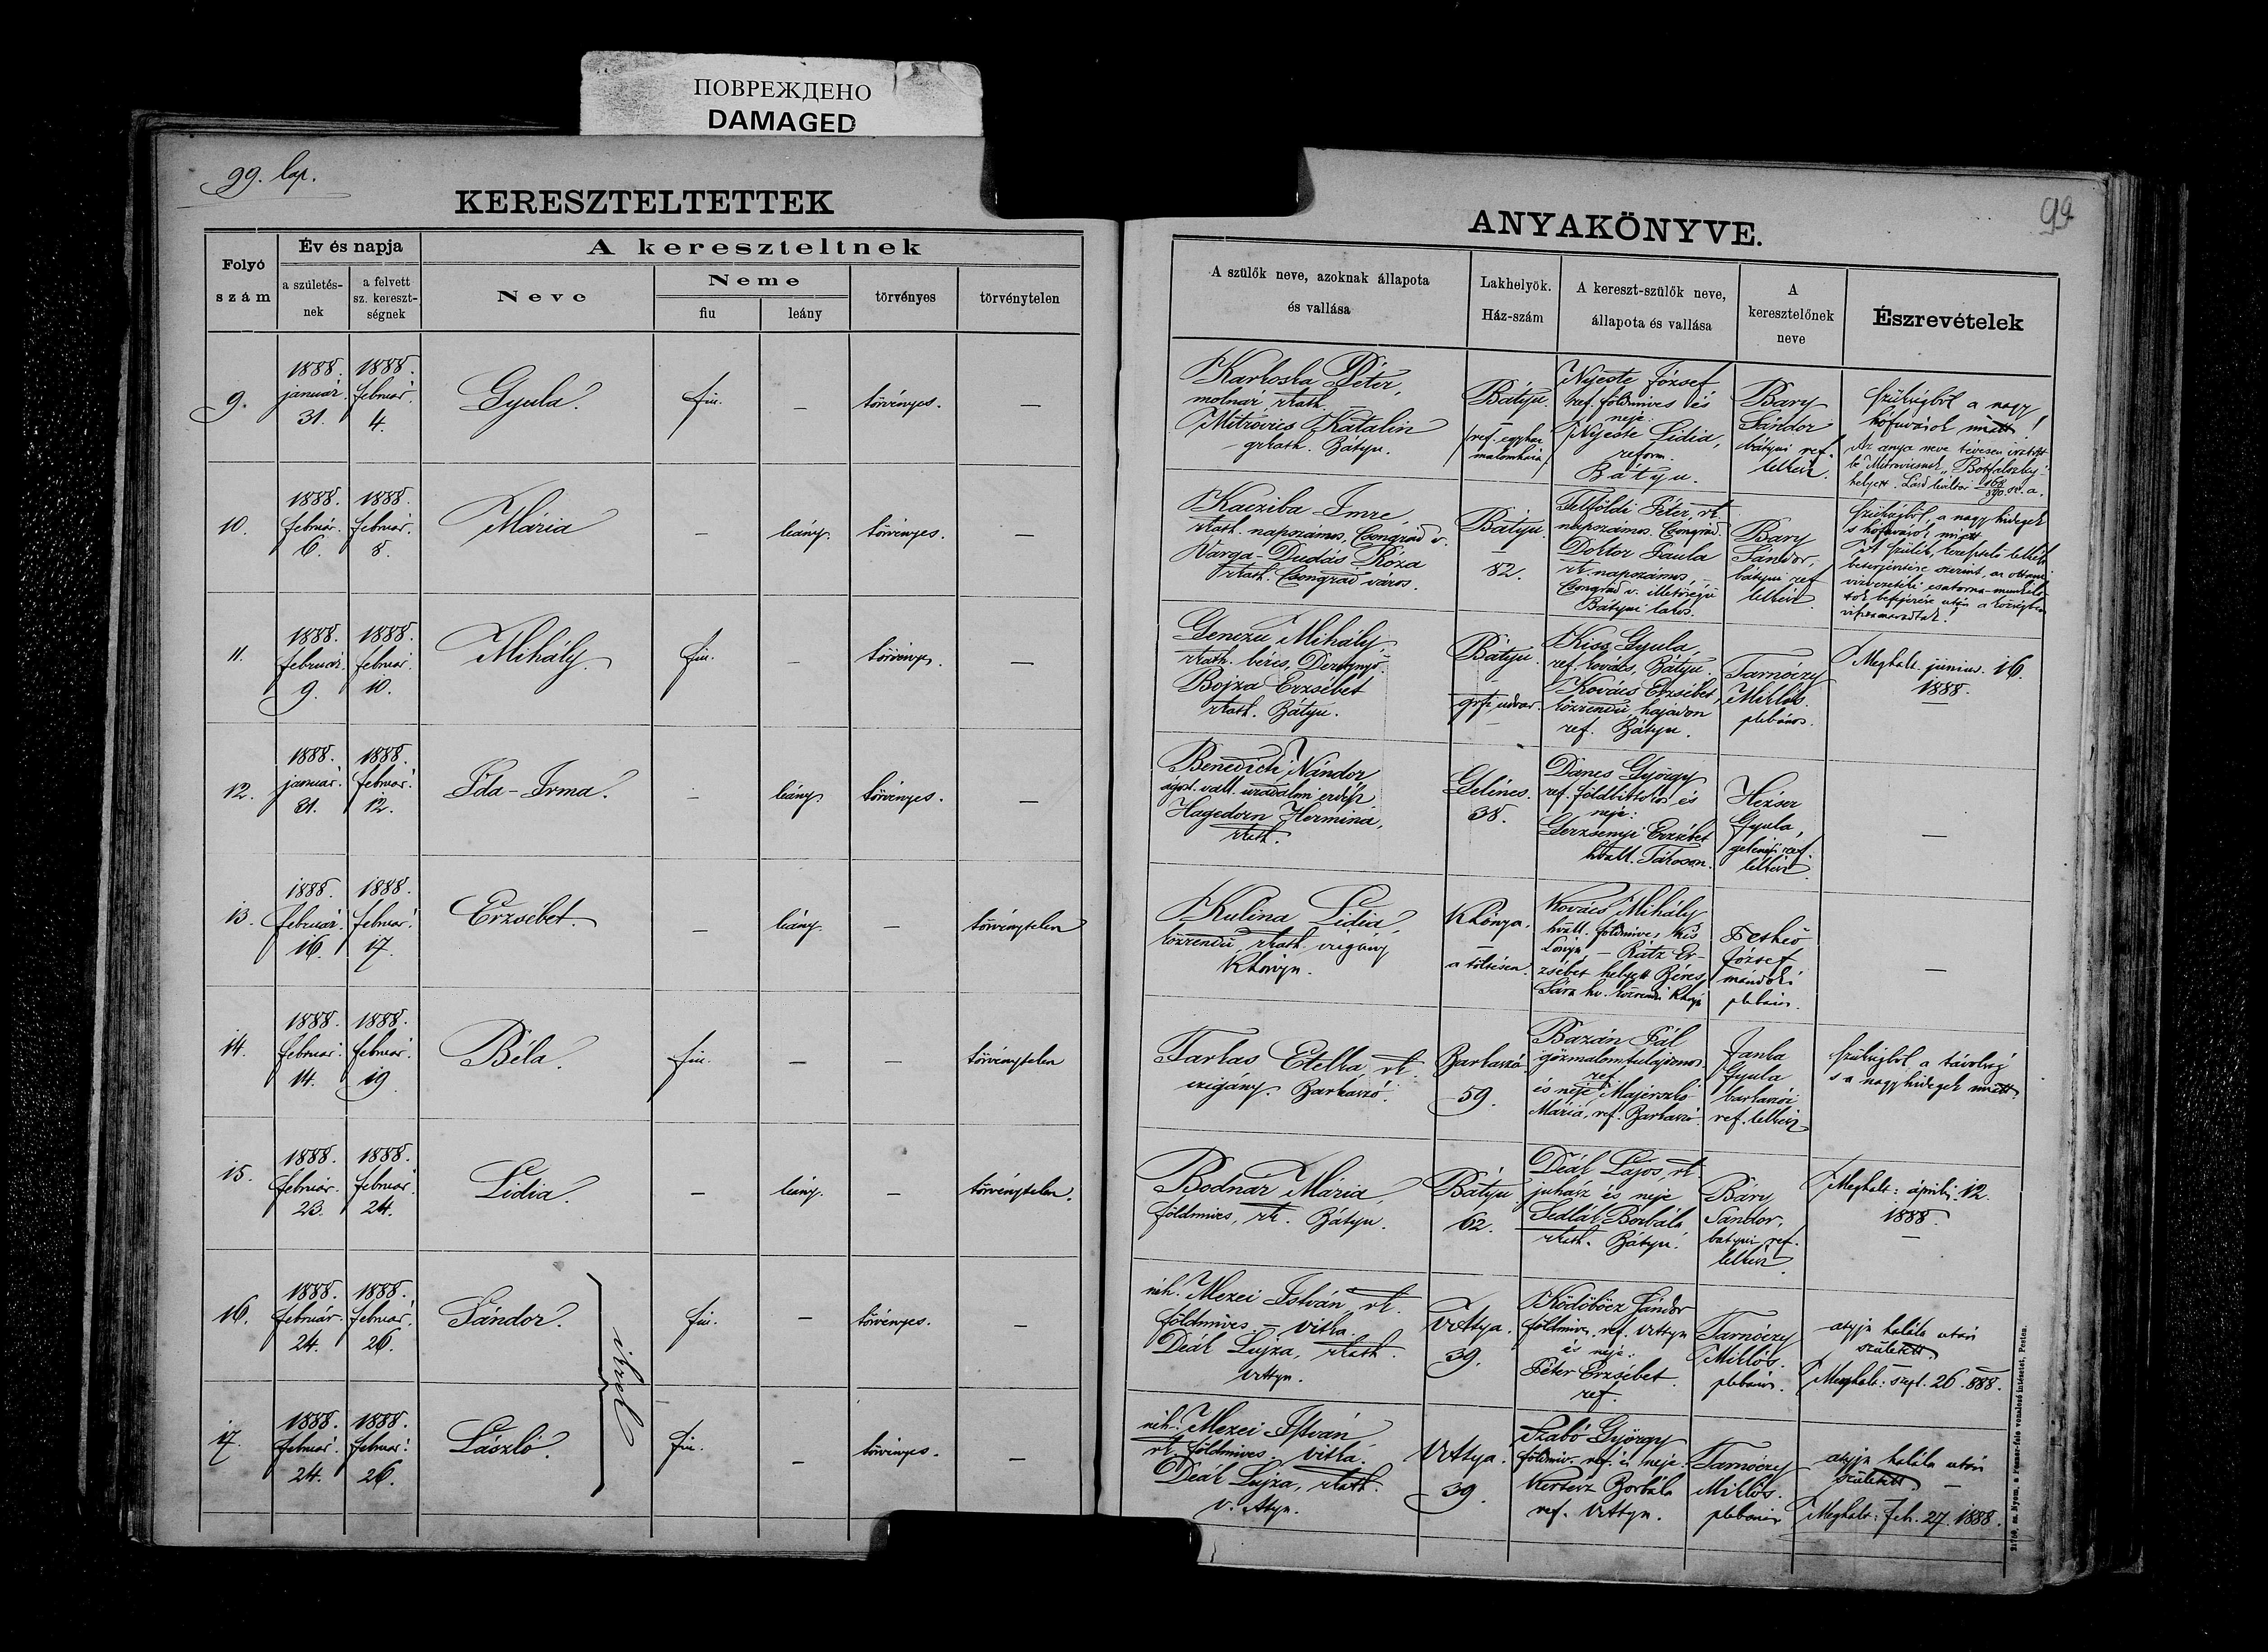 ПОВРЕЖДЕНО
DAMAGED
99. lap.
99
KERESZTELTETTEK
ANYAKÖNYVE.
Folyó
szám
Év és napja
a születés-
nek
a felvett
sz. kereszt-
ségnek
A kereszteltnek
Neve
Neme
fiu
leány
törvényes
törvénytelen
A szülők neve, azoknak állapota
és vallása
Lakhelyök.
Ház-szám
A kereszt-szülők neve,
állapota és vallása
A
keresztelőnek
neve
Észrevételek
9.
1888.
január.
31.
1888.
február.
4.
Gyula.
fiu.
–
törvényes.
–
Karkoska Péter,
molnár rkath.
Mitrovics Katalin
grkath. Bátyu.
Bátyu.
–
ref. egyház
Nyeste József
ref. földmives és
neje
Nyeste Lidia,
reform.
Bátyu.
Bary
Sándor
bátyui ref.
lelkész.
Szükségből a nagy
hófuvások miatt!
Az anya neve tévesen
10.
1888.
február.
6.
1888.
február.
8.
Mária
–
leány.
törvényes.
–
Kacziba Imre,
rkath. napszámos, Csongrád v.
Varga-Dudás Róza
rkath. Csongrád város.
Bátyu.
–
82.
Felföldi Péter, rk.
napszámos. Csongrád.
Doktor Paula
rk. napszámos, –
Csongrád v. illetőségü
Bátyui lakos.
Bary
Sándor,
bátyui ref
lelkész.
Szükségből, a nagy hidegek
s hófuvások miatt.
11.
1888.
február.
9.
1888.
február.
10.
Mihály.
fiu.
–
törvényes.
–
Genczu Mihály,
rkath. béres,
Bojza Erzsébet
rkath. Bátyu.
Bátyu.
–
grfi udvar.
Kiss Gyula,
ref. kovács, Bátyu.
Kovács Erzsébet,
közrendü hajadon
ref. Bátyu.
Tarnóczy
Miklós.
plebános.
Meghalt. június. 16.
1888.
12.
1888.
január.
31.
1888.
február.
12.
Ida-Irma.
–
leány.
törvényes.
–
Benedicti Nándor
ágost. vall. uradalmi erdész.
Hagedorn Hermina,
rkath.
Gelénes.
38.
Dancs György
ref. földbirtokos és
neje:
Gerzsenyi Erzsébet
hvall.
Hézser
Gyula,
gelénesi ref.
lelkész.
–
13.
1888.
február.
16.
1888.
február.
17.
Erzsébet.
–
leány.
–
törvénytelen
Kulina Lidia,
közrendü, rkath. czigány
KLónya.
–
a töltésen.
Kovács Mihály
hvall. földmives, Kis
Lónya, – Rátz Er-
zsébet helyett Béres
Sára
Feskó
József
mándoki
plebános.
–
14.
1888.
február.
14.
1888.
február.
19
Béla.
fiu.
–
–
törvénytelen
Farkas Etelka, rk.
czigány. Barkaszó.
Barkaszó.
59.
Bazán Pál
gőzmalomtulajdonos
ref.
és neje
Mária, ref. Barkaszó.
Janka
Gyula
barkaszói
ref. lelkész
Szükségből a távolság
s a nagy hidegek miatt
15.
1888.
február.
23.
1888.
február.
24.
Lidia.
–
leány.
–
törvénytelen.
Bodnár Mária,
földmives, rk. Bátyu.
Bátyu
62.
Deák Lajos, rk
juhász és neje
Sedlák Borbála
rkath. Bátyu.
Báry
Sándor,
bátyui ref.
lelkész.
Meghalt: április. 12.
1888.
–
16.
1888.
február.
24.
1888.
február.
26.
Sándor.
ikrek
fiu.
–
törvényes.
–
néh. Mezei István, rk.
földmives – vitka.
Deák Lujza, rkath.
VAttya.
VAttya.
39.
Ködöböcz Sándor
földmives, ref. VAttya
és neje:
Péter Erzsébet.
ref.
Tarnóczy
Miklós.
plebános.
atyja halála után
született.
Meghalt: szept. 26. 888.
17.
1888.
február.
24.
1888.
február.
26.
László.
fiu.
–
törvényes.
–
néh. Mezei István
rk. földmives. vitka.
Deák Lujza, rkath.
V. Attya.
VAttya.
39.
Szabó György
földmiv. ref. és neje.
Kertész Borbála
ref. VAttya.
Tarnóczy
Miklós.
plebános
atyja halála után
született. –
Meghalt: Feb. 27. 1888.